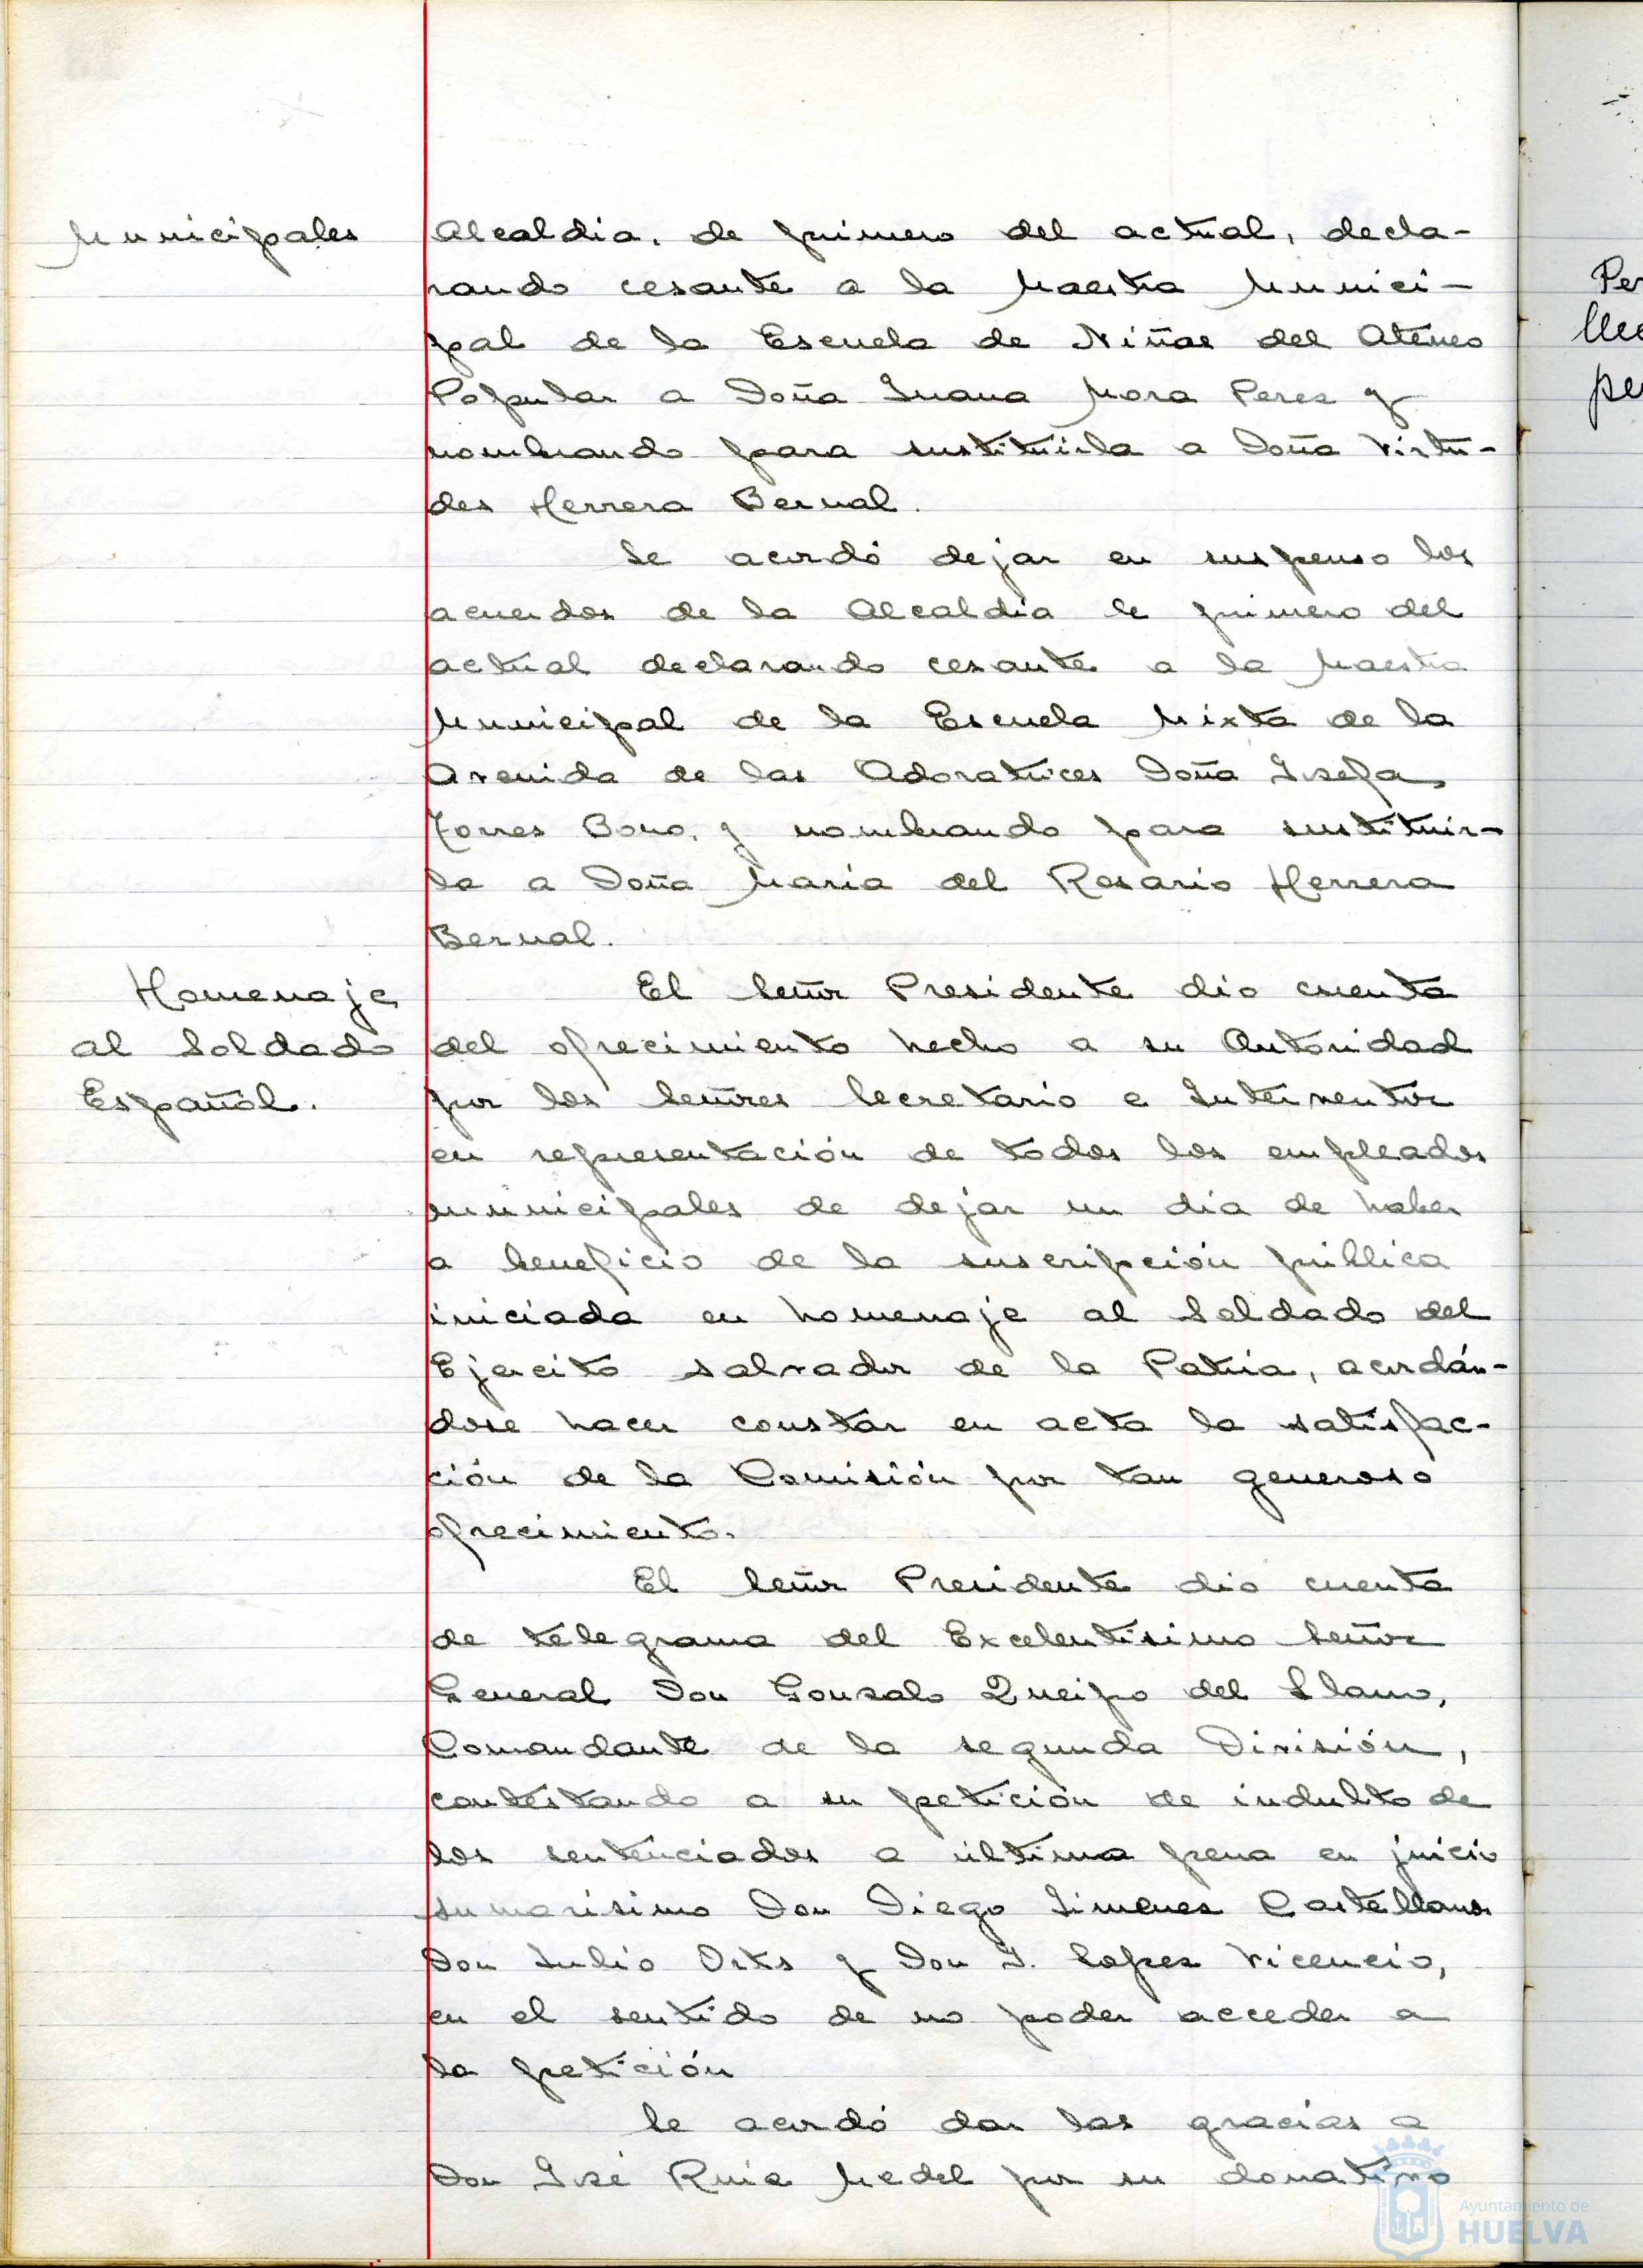 Municipales
Alcaldia, de primero del actual, decla-
rando cesante a la Maestra Munici-
pal de la Escuela de Niñas del Ateneo
Popular a Doña Juana Mora Perez y
nombrando para sustituirla a Doña Virtu-
des Herrera Bernal.
Se acordó dejar en suspenso los
acuerdos de la Alcaldia de primero del
actual declarando cesante a la Maestra
Municipal de la Escuela Mixta de la
Avenida de las Adoratrices Doña Josefa
Torres Bono, y nombrando para sustituir-
la a Doña Maria del Rosario Herrera
Bernal.
Homenaje
al Soldado
Español.
El Señor Presidente dio cuenta
del ofrecimiento hecho a su Autoridad
por los Señores Secretario e Interventor
en representación de todos los empleados
municipales de dejar un dia de haber
a beneficio de la suscripción pública
iniciada en homenaje al Soldado del
Ejercito salvador de la Patria, acordán-
dose hacer constar en acta la satisfac-
ción de la Comisión por tan generoso
ofrecimiento.
El Señor Presidente dio cuenta
de telegrama del Excelentisimo Señor
General Don Gonzalo Queipo del Llano,
Comandante de la segunda División,
contestando a su petición de indulto de
los sentenciados a última pena en juicio
sumarisimo Don Diego Jimenez Castellano
Don Julio Orts y Don J. Lopez Vicencio,
en el sentido de no poder acceder a
la petición
Se acordó dar las gracias a
Don José Ruiz Medel por su donativo
Per
pe
Ayuntamiento de
HUELVA